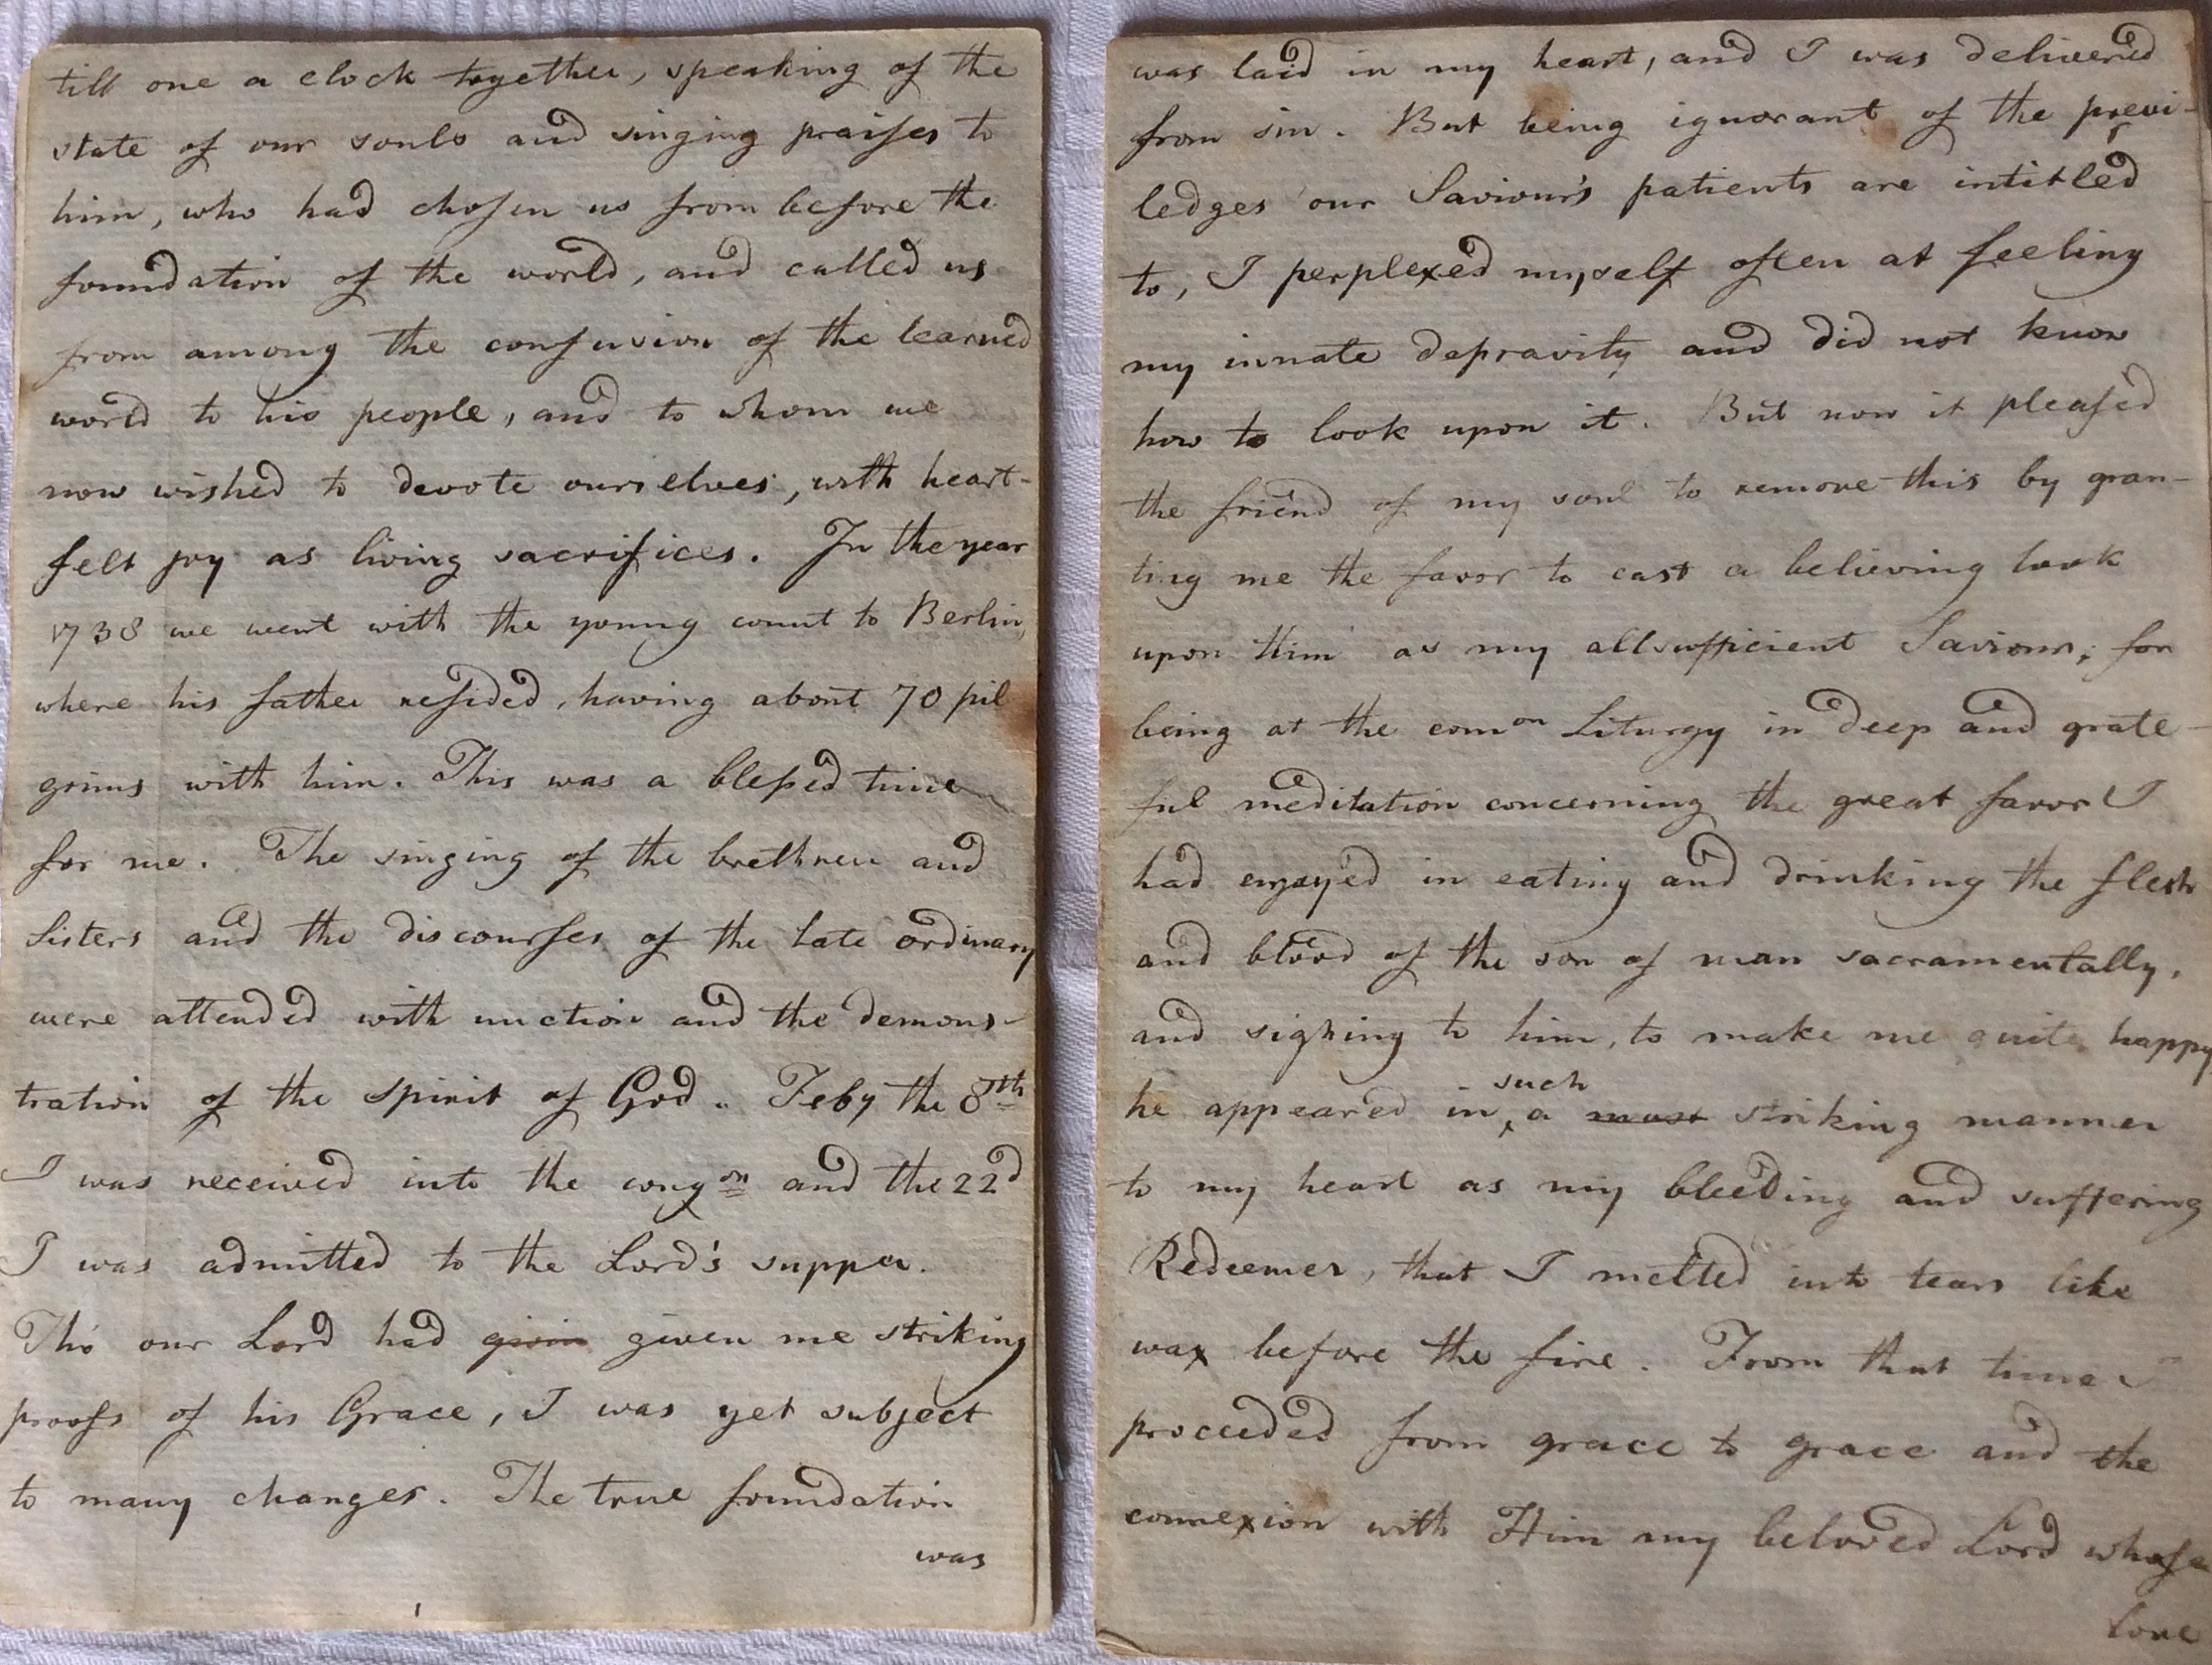 till one a clock together, speaking of the
state of our souls and singing praises to
him, who had chosen us from before the
foundation of the world, and called us
from among the confusion of the learned
world to his people, and to whom we
now wished to devote ourselves, with heart-
felt joy as living sacrifices. In the year
1738 we went with the young count to Berlin,
where his father resided, having about 70 pil
grims with him. This was a blessed time
for me. The singing of the brethren and
Sisters and the discourses of the late ordinary
were attended with unction and the demons-
tration of the spirit of God. Feby the 8th
I was received into the congon and the 22d
I was admitted to the Lord's supper.
Tho' our Lord had givin given me striking
proofs of his Grace, I was yet subject
to many changes. The true foundation
was
was laid in my heart, and I was delivered
from sin. But being ignorant of the previ-
ledges our Saviour's patients are intitled
to, I perplexed myself often at feeling
my innate depravity and did not know
how to look upon it. But now it pleased
the friend of my soul to remove this by gran-
ting me the favor to cast a believing look
upon Him as my allsufficient Saviour; for
being at the comon Liturgy in deep and grate-
ful meditation concerning the great favor I
had enjoyed in eating and drinking the flesh
and blood of the son of man sacramentally,
and sighing to him, to make me quite happy
he appeared in such a most striking manner
to my heart as my bleeding and suffering
Redeemer, that I melted into tears like
wax before the fire. From that time I
proceeded from grace to grace and the
connexion with Him my beloved Lord whose
love